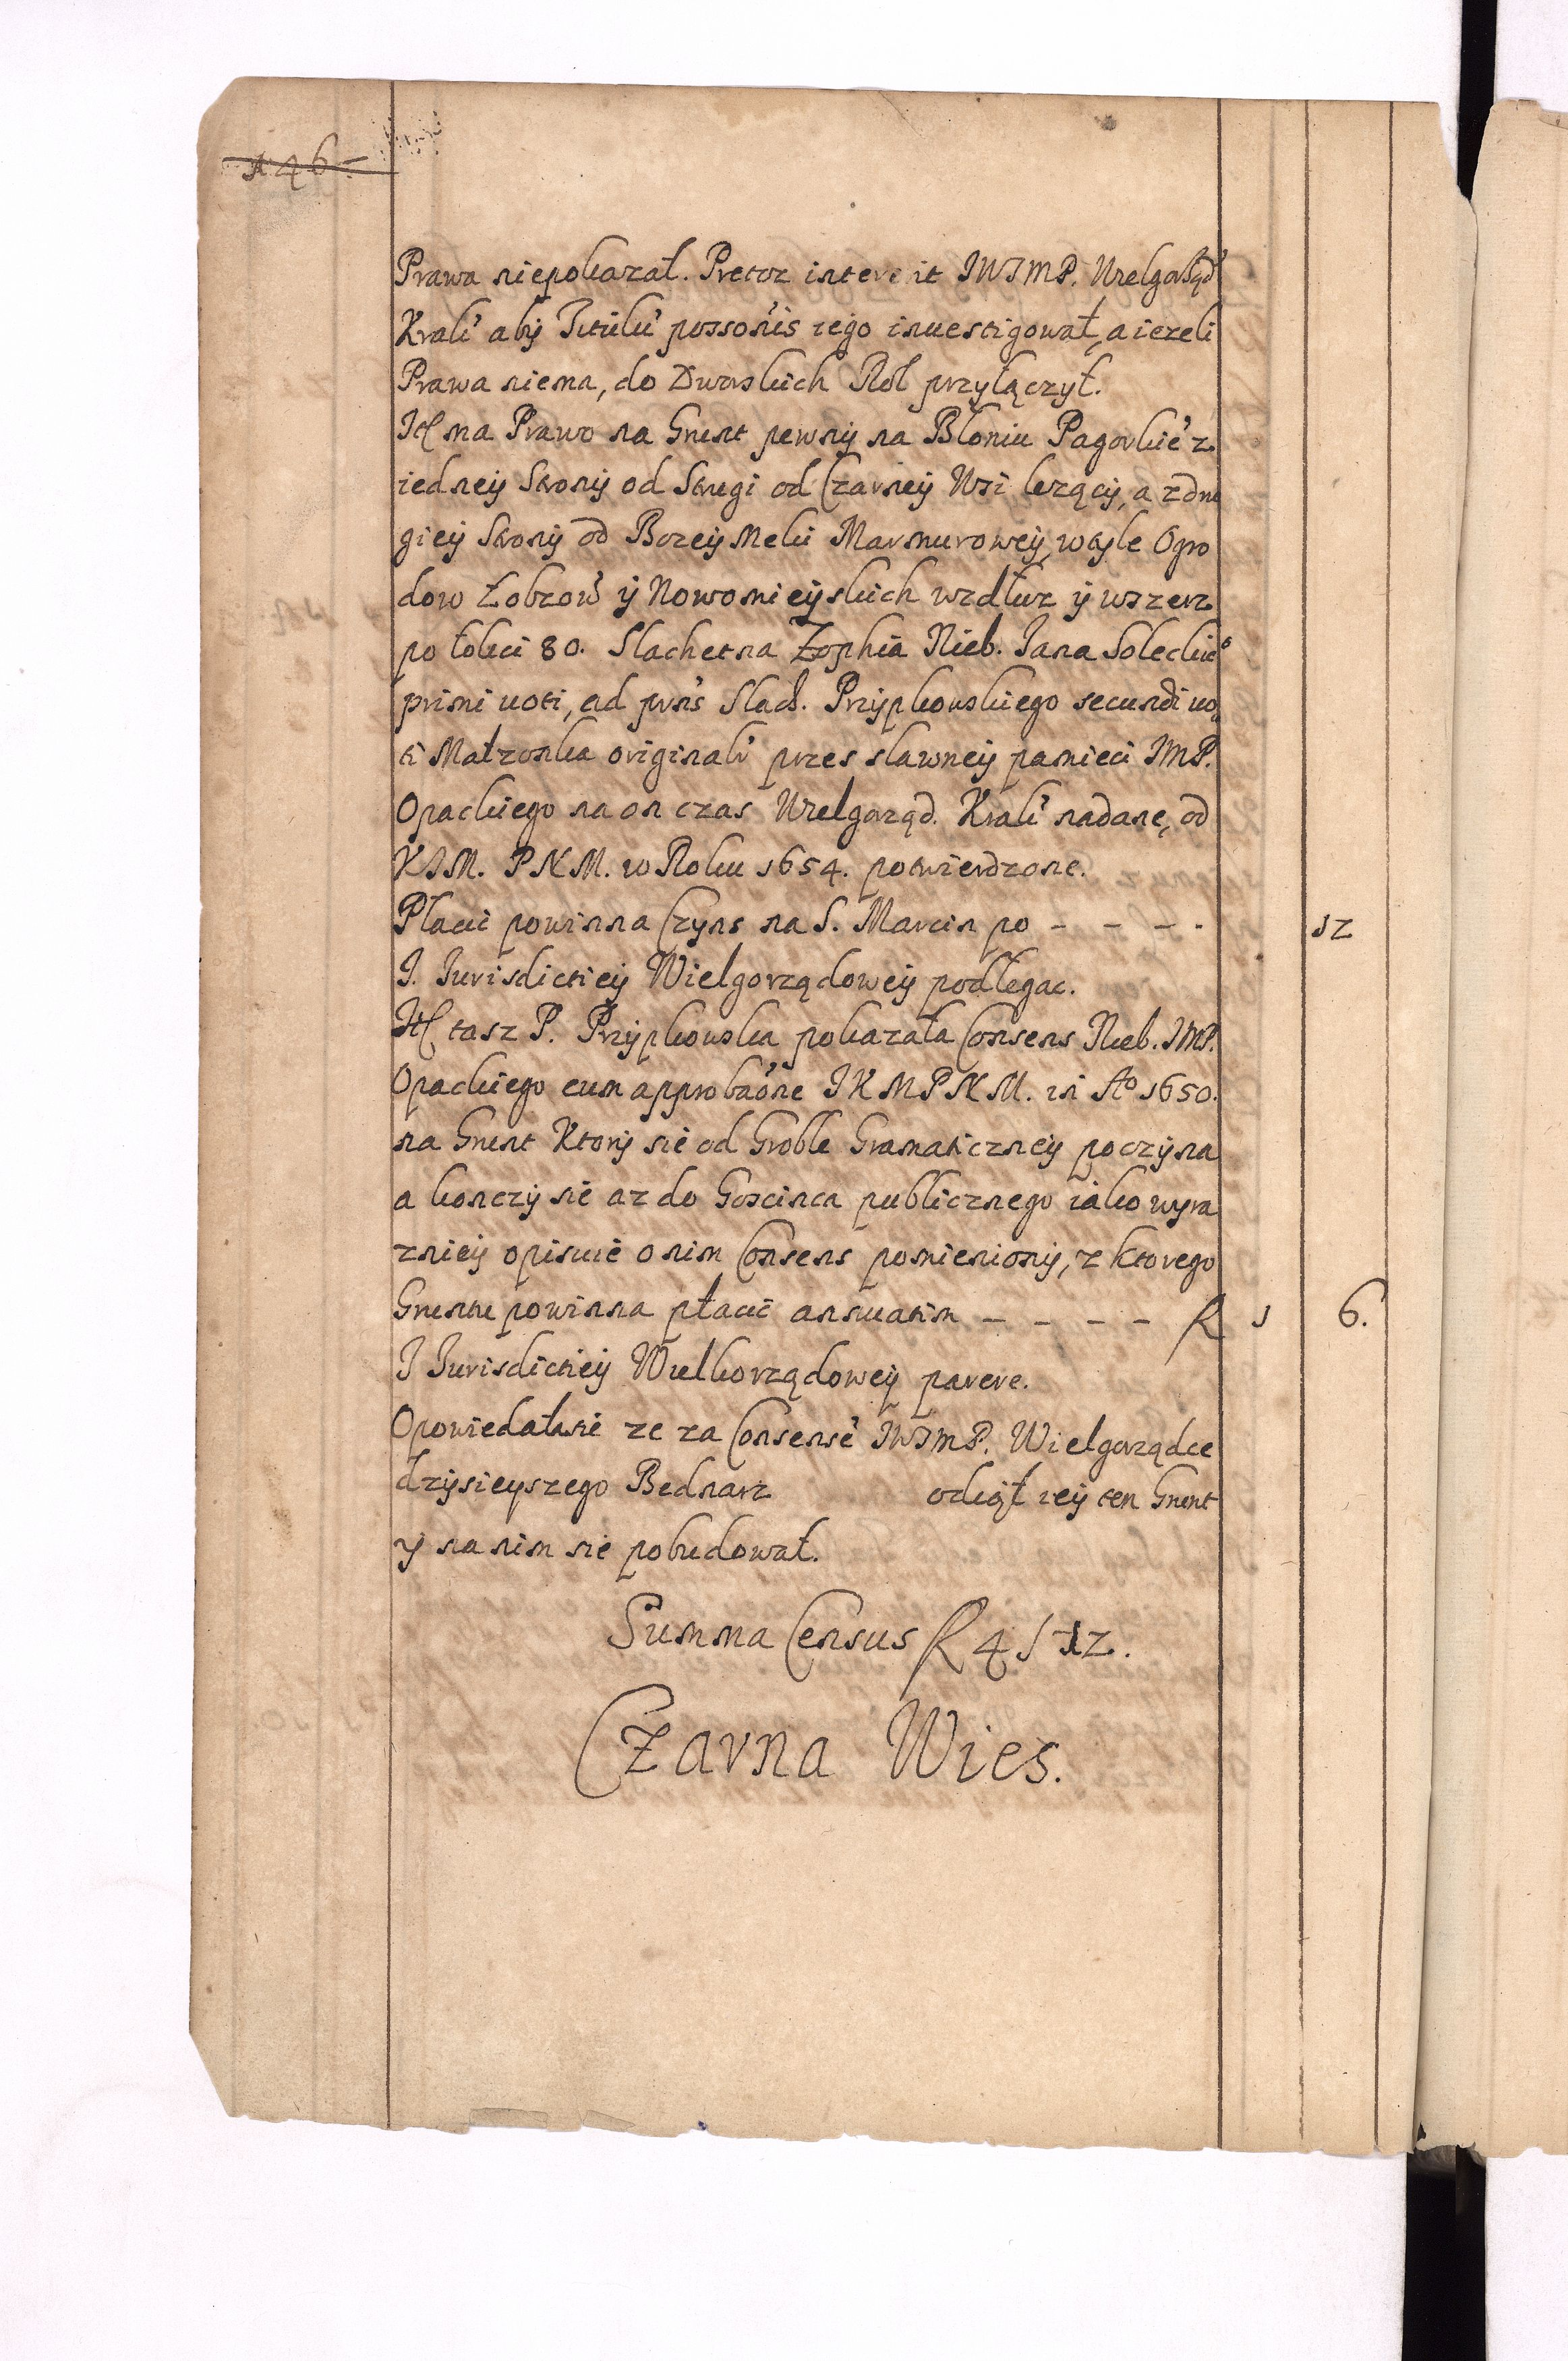 146
Prawa niepokazał. Pretor intererit JWJMP. Wielgorząd
Krali aby Titulu possonis iego inuestigował, a iezeli
Prawa niema, do Dworskich Rol przyłączył.
It ma Prawo na Grunt pewny na Błoniu Pagorkie z
iedney Strony od Strugi od Czarney Wsi lezący, a z dru
giey Strony od Bozey Meki Marmurowey, wtyle Ogro
dow Łobzow y Nowomieyskich wzdłuz y wszerz
po łokci 80. Slachetna Zophia Nieb. Jana Soleckie°
primi uoti, ad prns Slach. Przypkowskiego secundi uo
ti Małzonka originali przes sławney pamieci JMP.
Opackiego na on czas Wielgorząd. Krali nadane, od
KJM. PNM. w Roku 1654. potwierdzone.
Płacic powinna Czyns na S. Marcin po - - - - 12
J. Jurisdictiey Wielgorządowey podlegac.
It tasz P. Przypkowska pokazała Consens Nieb. JMP.
Opackiego cum approbaone JKMPNM. in A° 1650.
na Grunt Ktory sie od Groble Gramaticzney poczyna
a konczy sie az do Goscinca publicznego iako wyra
zniey opisuie o nim Consens pomieniony, z ktorego
Gruntu powinna płacic annuatim - - - - R 1 6.
J Jurisdictiey Wielkorządowey parere.
Opowiedałasie ze za Consense JWJMP. Wielgorządce
dzysieyszego Bednarz odiął iey ten Grunt
y na nim sie pobudował.
Summa Census R 4 / 12.
Czarna Wies.